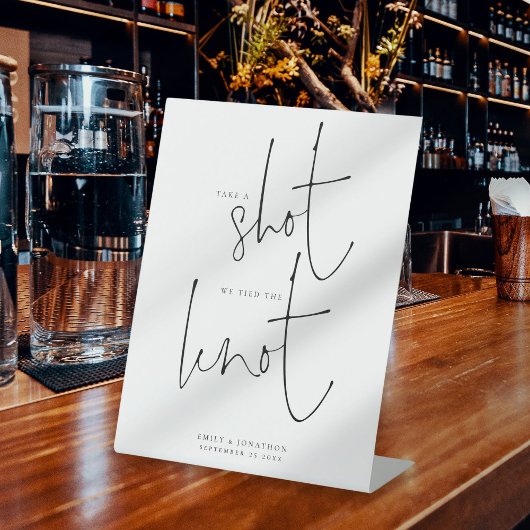 TAKE A
shot
WE TIED THE
knot
EMILY & JONATHON
SEPTEMBER 25 20XX